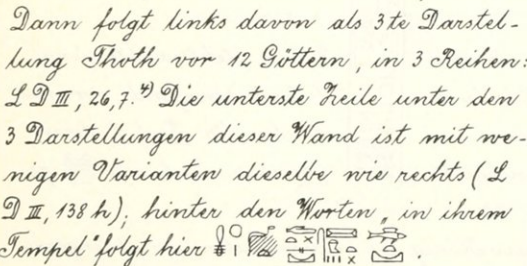 Dann folgt links davon als 3te Darstel-
lung Thoth vor 12 Göttern, in 3 Reihen:
L D III, 26,7.⁴⁾ Die unterste Zeile unter den
3 Darstellungen dieser Wand ist mit we-
nigen Varianten dieselbe wie rechts (L
D III, 138 h); hinter den Worten „in ihrem
Tempel" folgt hier